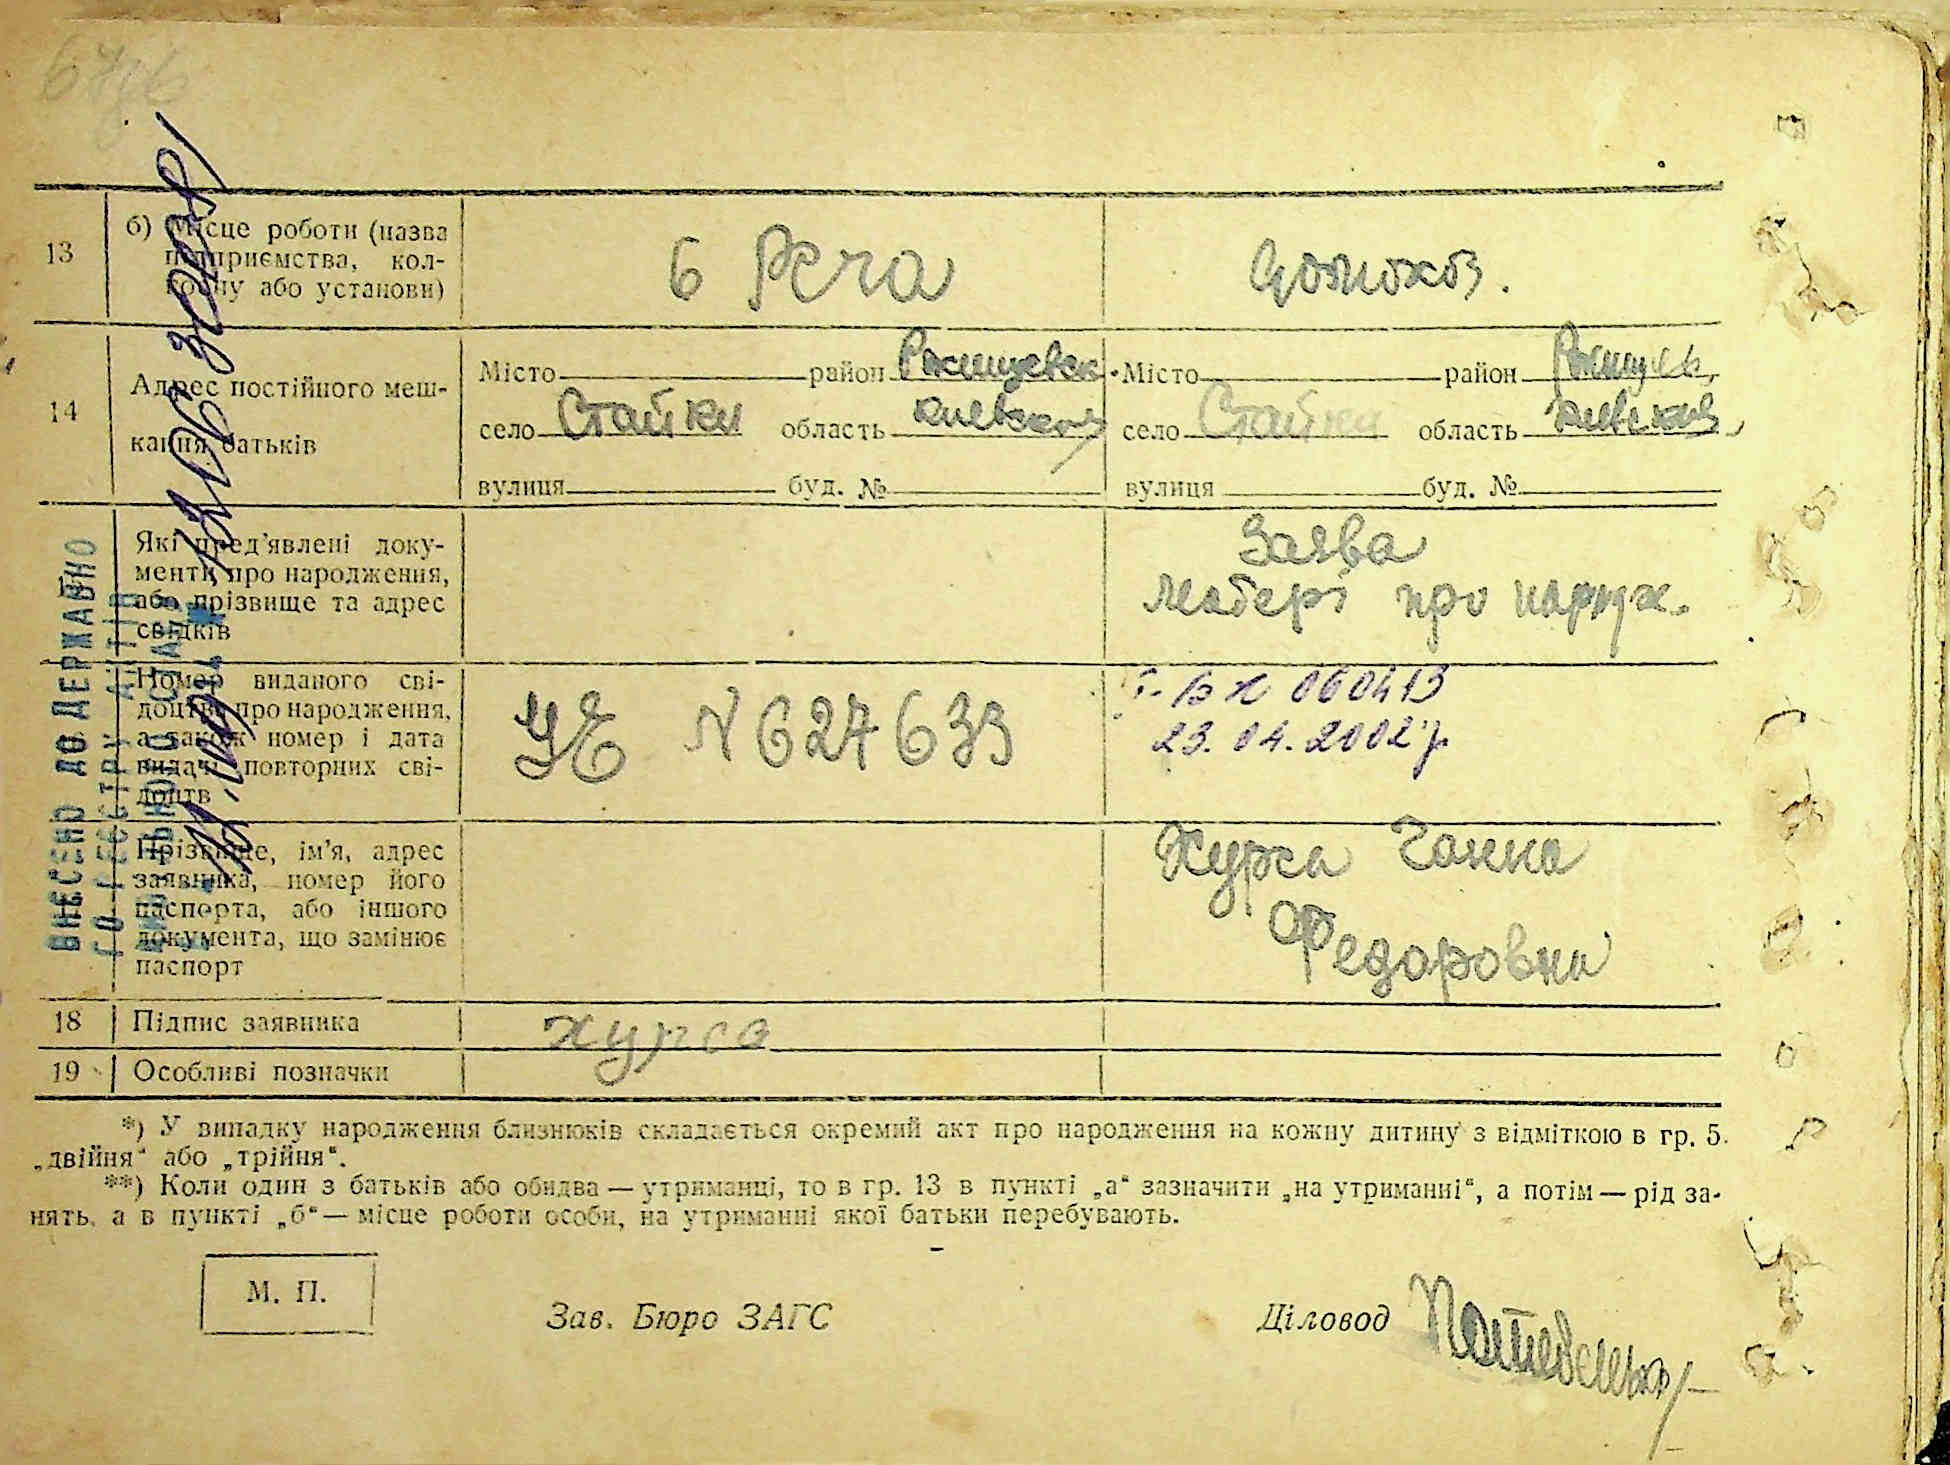 13
б) Місце роботи (назва
підприємства, кол-
госпу або установи)
14
Адрес постійного меш-
кання батьків
Місто район Ржищевск
село Стайки область
вулиця буд. №
Місто район Ржищев.
село Стайки область
вулиця буд. №
Які пред'явлені доку-
менти про народження,
або прізвище та адрес
свідків
Заява
матері про народж.
Номер виданого сві-
доцтва про народження,
а також номер і дата
видачі повторних сві-
доцтв
УЕ N 627633
060413
23.04.2002 р
Прізвище, ім'я, адрес
заявника, номер його
паспорта, або іншого
документа, що замінює
паспорт
Хурса Ганна
Федоровна
18 Підпис заявника
Хурса
19 Особливі позначки
ВНЕСЕНО ДО ДЕРЖАВНО
ГО РЕЄСТРУ АКТІВ
*) У випадку народження близнюків складається окремий акт про народження на кожну дитину з відміткою в гр. 5.
„двійня“ або „трійня“.
**) Коли один з батьків або обидва — утриманці, то в гр. 13 в пункті „а“ зазначити „на утриманні“, а потім — рід за-
нять, а в пункті „б“ — місце роботи особи, на утриманні якої батьки перебувають.
М. П.
Зав. Бюро ЗАГС
Діловод